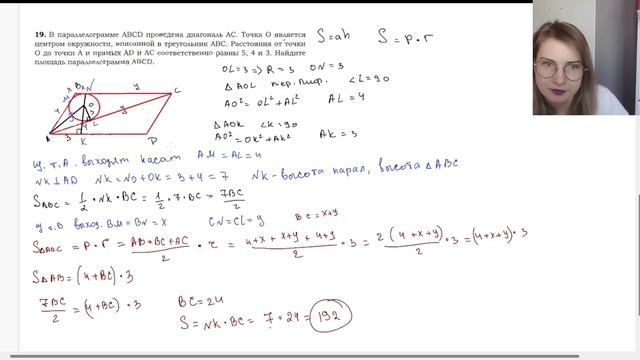 19. В параллелограмме ABCD проведена диагональ AC. Точка O является
центром окружности, вписанной в треугольник ABC. Расстояния от точки
O до точки A и прямых AD и AC соответственно равны 5, 4 и 3. Найдите
площадь параллелограмма ABCD.
S=ah S=p·r
OL=3 => R=3 ON=3
△AOL пер. пиф. <L=90
AO²=OL²+AL² AL=4
△AOK <K=90
AO²=OK²+AK² AK=3
A B N C
O L
A K D
x y 4 3
из т.A. выходят касат AM=AL=4
NK⊥AD NK=NO+OK=3+4=7 NK-высота парал, высота △ABC
S△ABC=1/2·NK·BC=1/2·7·BC=7BC/2
из т.B выход. BM=BN=x CN=CL=y BC=x+y
S△ABC=P·r=AB+BC+AC/2·r=4+x+x+y+4+y/2·3=2(4+x+y)/2·3=(4+x+y)·3
S△AB=(4+BC)·3
7BC/2=(4+BC)·3 BC=24
S=NK·BC=7·24=192